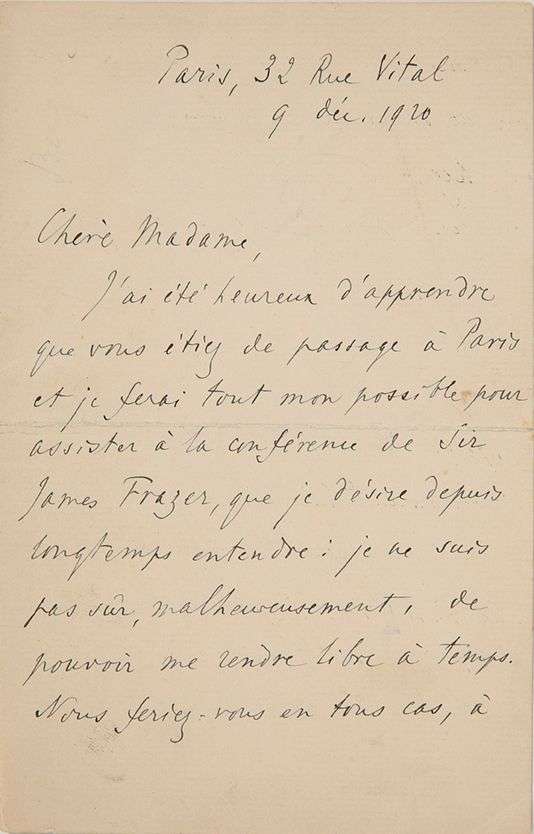 Paris, 32 Rue Vital
9 déc. 1920
Chère Madame,
J'ai été heureux d'apprendre
que vous étiez de passage à Paris
et je ferai tout mon possible pour
assister à la conférence de Sir
James Frazer, que je désire depuis
longtemps entendre : je ne suis
pas sûr, malheureusement, de
pouvoir me rendre libre à temps.
Nous feriez-vous en tous cas, à